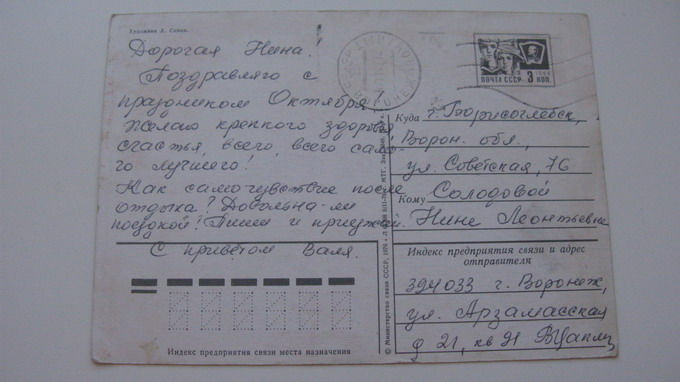 Художник А. Савин.
Дорогая Нина!
Поздравляю с
праздником Октября!
Желаю крепкого здоровья
счастья, всего, всего само-
го лучшего!
Как самочувствие после
отдыха? Довольна-ли
поездкой? Пиши и приезжай.
С приветом Валя.
ПОЧТА СССР 3 КОП.
Куда г. Борисоглебск,
Ворон. обл.,
ул. Советская, 76
Кому Солодовой
Нине Леонтьевне
Индекс предприятия связи и адрес
отправителя
394033 г. Воронеж,
ул. Арзамасская
д 21, кв 91
© Министерство связи СССР, 1976
Индекс предприятия связи места назначения